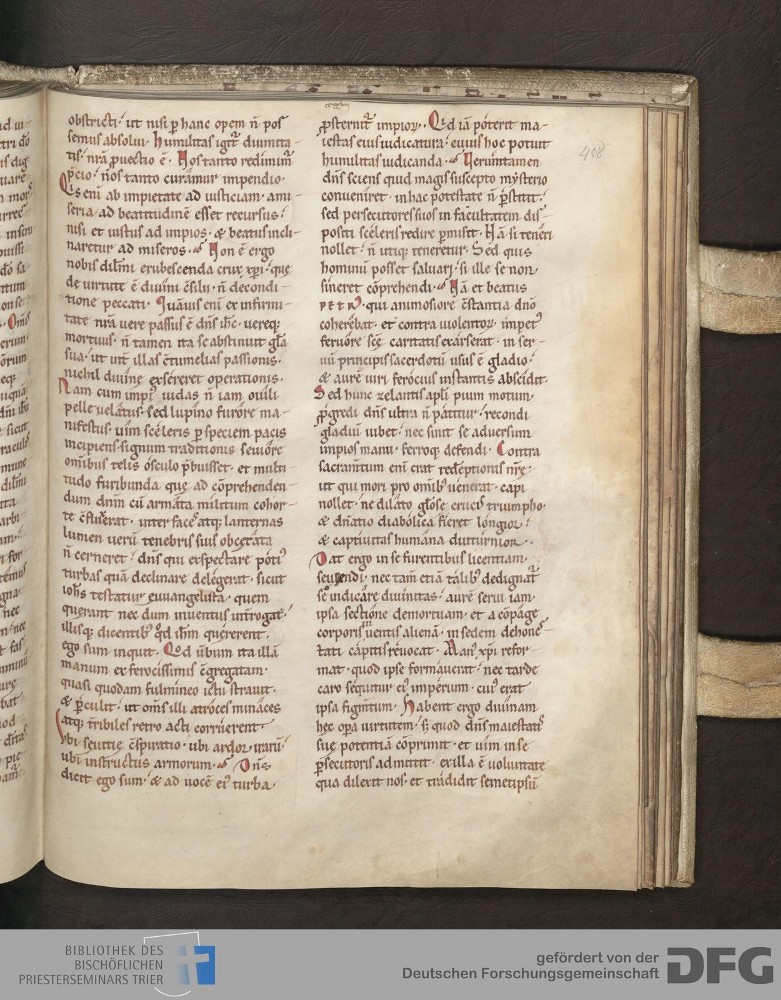 obstricti. ut nisi ꝑ hanc opem ñ pos
semus absolui. humilitas igit᷑ diuinita-
tis. nr̃a ꝓuectio ē. Nos tanto redimim᷑
p̃cio. nos tanto curamur impendio.
Qis eni᷑ ab impietate ad iusticiam. a mi
seria ad beatitudinē esset recursus.
nisi et iustus ad impios. & beatus incli-
naretur ad miseros. Non ē ergo
nobis dilm̃i erubescenda crux xp̃i. que
de uirtute ē diuini c̃silii. ñ decondi-
tione peccati. Quāuis eni᷑ ex infirmi-
tate nr̃a uere passus ē dñs ih̃c. uereq;
mortuus. ñ tamen ita se abstinuit gl̃a
sua. ut int᷑ illas c̃tumelias passionis.
nichil diuine exsereret operationis.
Nam cum impi᷒ iudas ñ iam ouili
pelle uelatus. sed lupino furore ma-
nifestus. uim sceleris ꝑ speciem pacis
incipiens. signum traditionis seuiore
om̃ibus telis osculo p̃buisset. et multi-
tudo furibunda que ad cōprehenden-
dum dnm̃ cū armata militum cohor-
te c̃fluxerat. inter faces atq; lanternas
lumen uerū tenebris suis obcecata
ñ cerneret. dñs qui exspectare poti᷒
turbas quā declinare delegerat. sicut
ioh̃s testatur euuangelista. quem
querant nec dum inuentus int̃rogat.
illisq; dicentib᷒ qd̃ ih̃m quererent.
ego sum inquit. Qod ũbum ita illā
manum ex ferocissimis c̃gregatam.
quasi quodam fulmineo ictu strauit.
& ꝑculit. ut om̃s illi atroces minaces
atq; t̃ribiles retro acti corruerent.
Vbi seuitie c̃spiratio. ubi ardor irarū.
ubi instructus armorum. Dñs
dicit ego sum. & ad uocē ei᷒ turba
ꝓsternit᷑ impioꝝ. Qid iā poterit ma-
iestas eius iudicatura. cuius hoc potuit
humilitas iudicanda. Veruntamen
dñs sciens quid magis suscepto mysterio
conueniret. in hac potestate ñ ꝑstitit.
sed persecutores suos in facultatem dis-
positi sceleris redire ꝑmisit. Nā si teneri
nollet. ñ utiq; teneretur. Sed quis
hominū posset saluari. si ille se non
sineret cōprehendi. Nā et beatus
PETR᷒. qui animosiore c̃stantia dnō
coherebat. et contra uiolentoꝝ impet᷒
feruore sc̃e caritatis exarserat. in ser-
uū principis sacerdotū usus ē gladio.
& aurē uiri ferocius instantis abscidit.
Sed hunc zelantis apl̃i pium motum.
ꝓgredi dñs ultra ñ patitur. recondi
gladiū iubet. nec sinit se aduersum
impios manu. ferroq; defendi. Contra
sacram̃tum eni᷑ erat redēptionis nr̃e
ut qui mori pro om̃ib᷒ uenerat. capi
nollet. ne dilato gl̃ose crucis triumpho.
& dñatio diabolica fieret longior.
& captiuitas humana diuturnior.
Dat ergo in se furentibus licentiam
seuiendi. nec tam̃ etiā talib᷒ dedignat᷑
se indicare diuinitas. aurē serui iam
ipsa sectione demortuam. et a cōpage
corporis uiuentis alienā. in sedem dehone-
stati capitis reuocat. Man᷒ xp̃i refor-
mat. quod ipse formauerat. nec tarde
caro sequitur ei᷒ imperium. cui᷒ erat
ipsa figm̃tum. Habent ergo diuinam
hec opa uirtutem. s; quod dñs maiestatis
sue potentiā cōprimit. et uim in se
ꝑsecutoris admittit. ex illa ē uoluntate
qua dilexit nos. et tradidit semetipsū
408
BIBLIOTHEK DES
BISCHÖFLICHEN
PRIESTERSEMINARS TRIER
gefördert von der
Deutschen Forschungsgemeinschaft
DFG